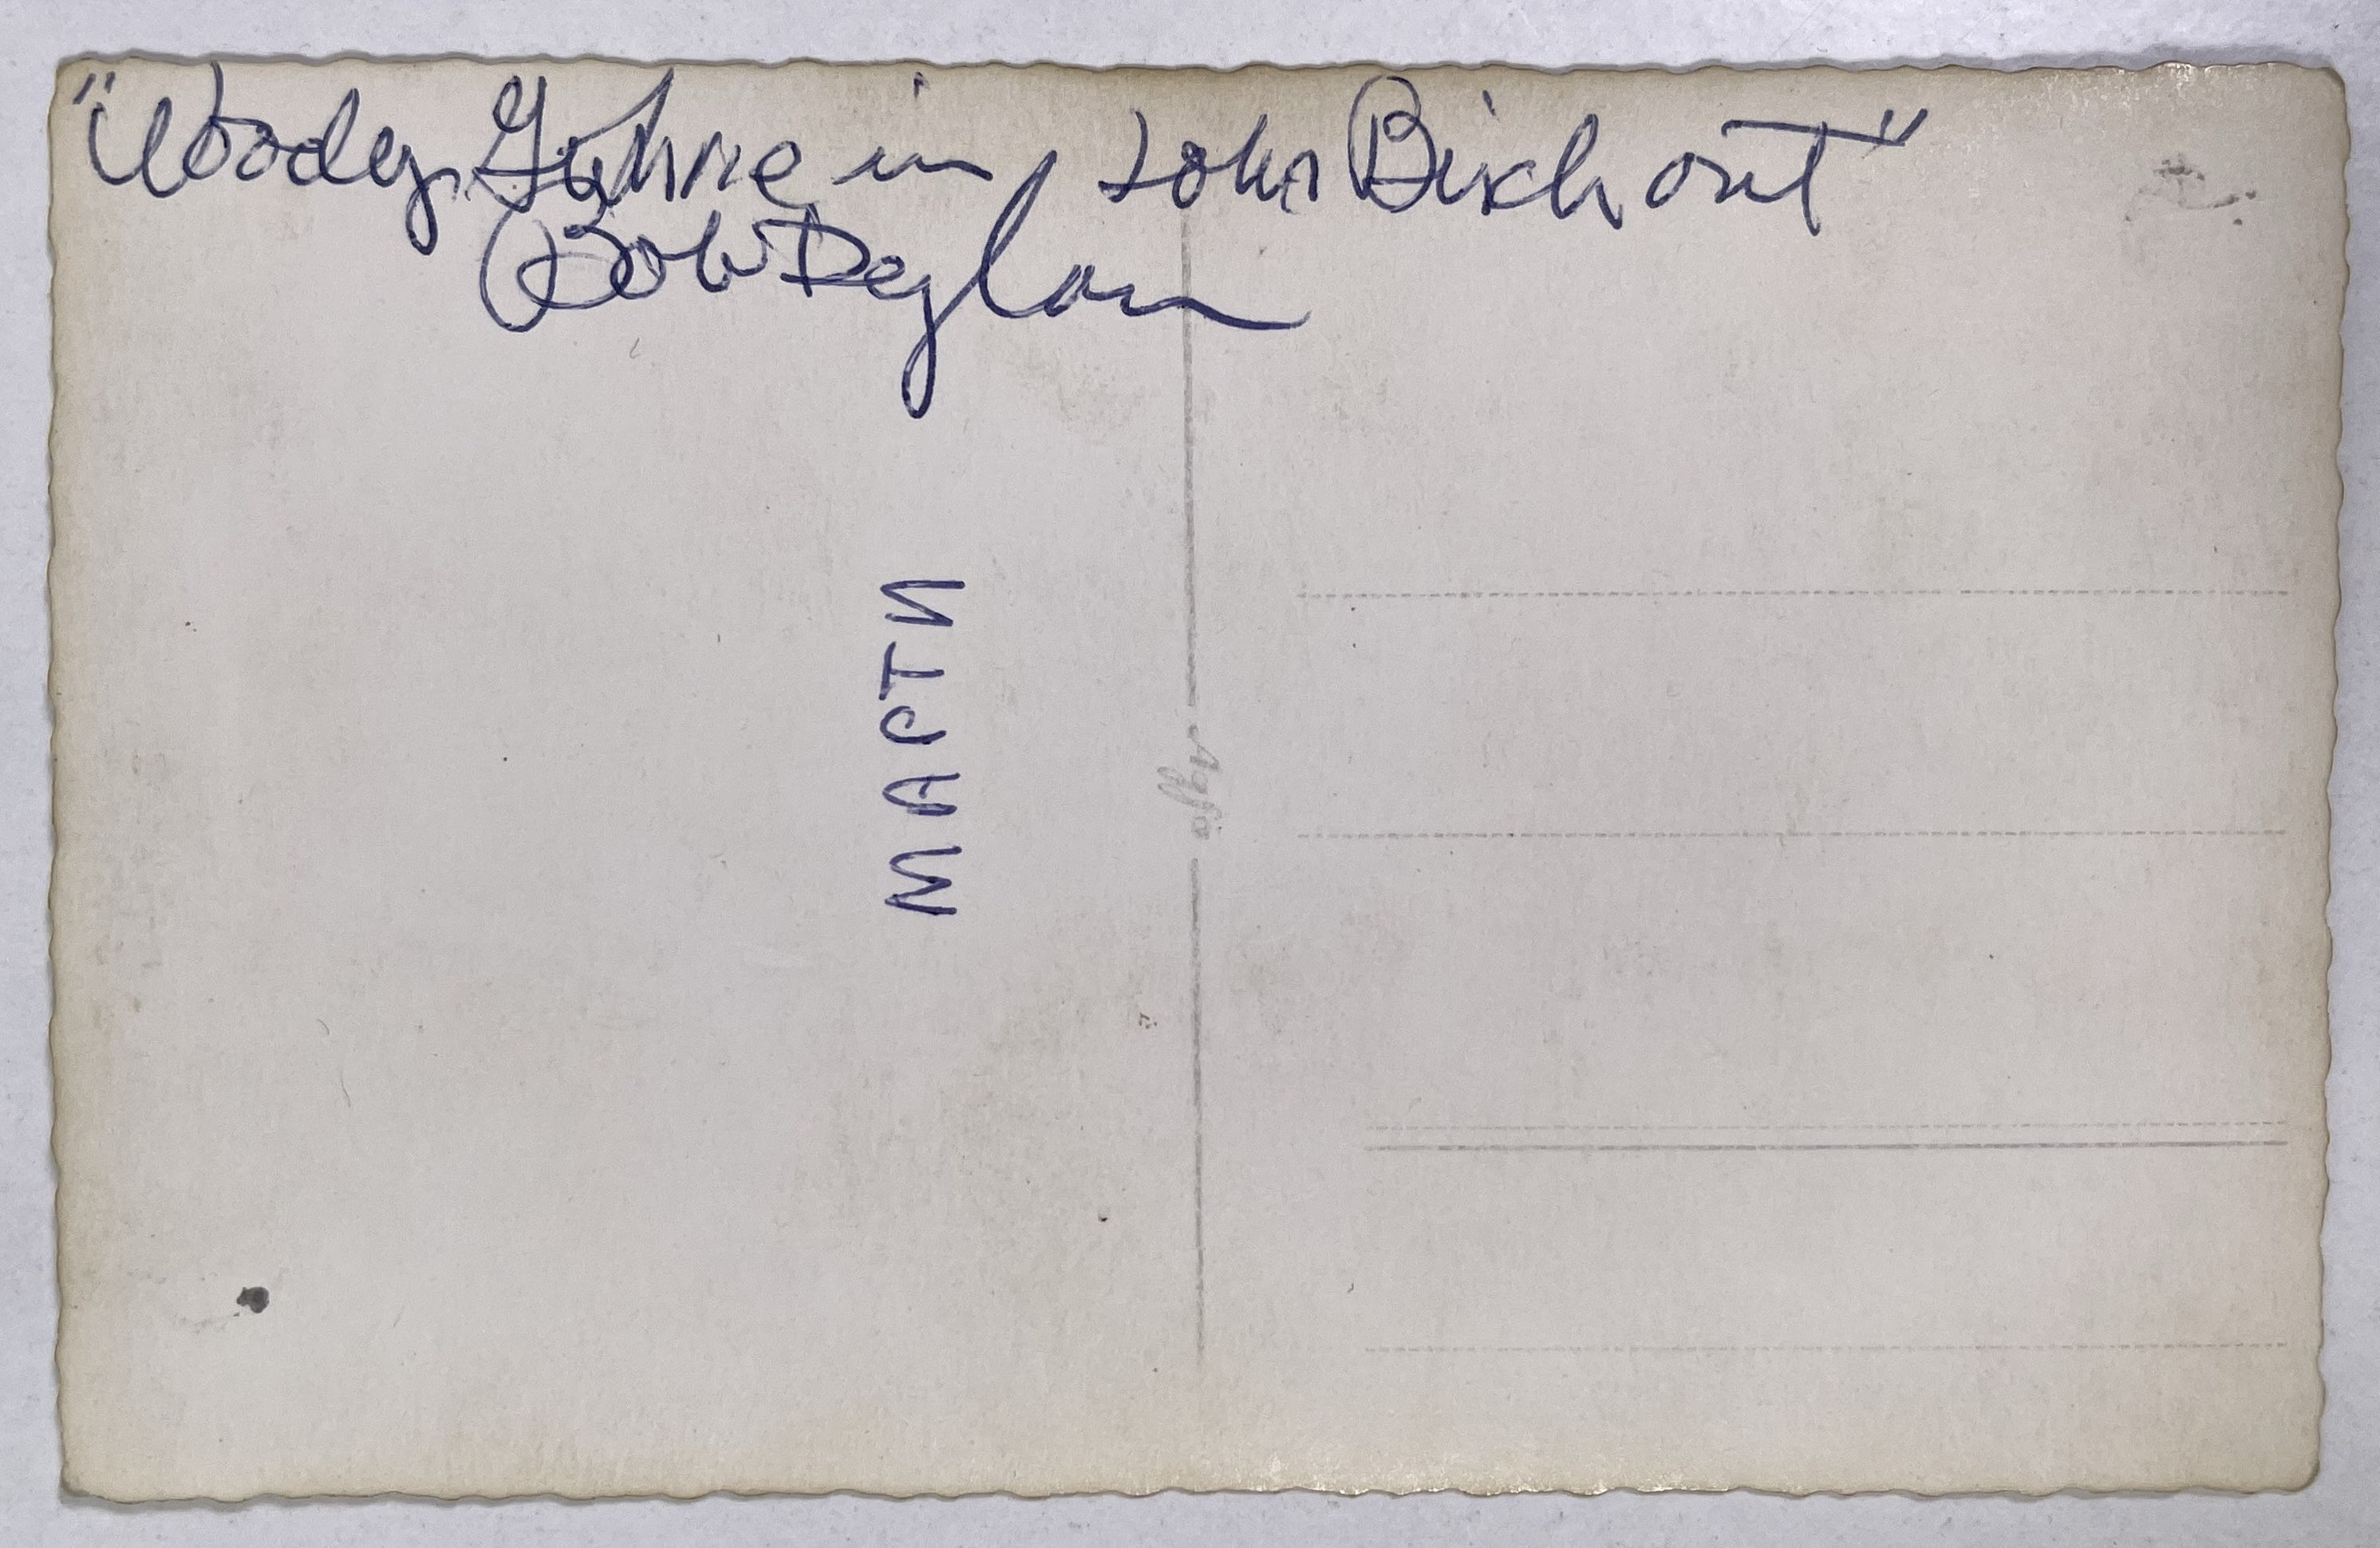 "Woody Guhrie in John Birch out"
Bob Deylan
МАРТИ
Agfa